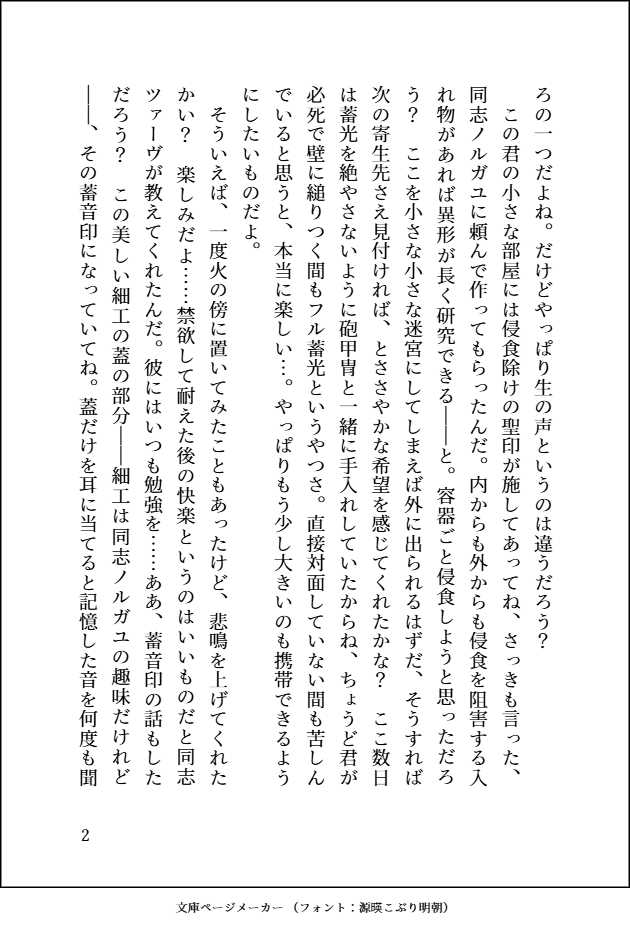 ろの一つだよね。だけどやっぱり生の声というのは違うだろう？
　この君の小さな部屋には侵食除けの聖印が施してあってね、さっきも言った、
同志ノルガユに頼んで作ってもらったんだ。内からも外からも侵食を阻害する入
れ物があれば異形が長く研究できる――と。容器ごと侵食しようと思っただろ
う？　ここを小さな小さな迷宮にしてしまえば外に出られるはずだ、そうすれば
次の寄生先さえ見付ければ、とささやかな希望を感じてくれたかな？　ここ数日
は蓄光を絶やさないように砲甲冑と一緒に手入れしていたからね、ちょうど君が
必死で壁に縋りつく間もフル蓄光というやつさ。直接対面していない間も苦しん
でいると思うと、本当に楽しい…。やっぱりもう少し大きいのも携帯できるよう
にしたいものだよ。
　そういえば、一度火の傍に置いてみたこともあったけど、悲鳴を上げてくれた
かい？　楽しみだよ……禁欲して耐えた後の快楽というのはいいものだと同志
ツァーヴが教えてくれたんだ。彼にはいつも勉強を……ああ、蓄音印の話もした
だろう？　この美しい細工の蓋の部分――細工は同志ノルガユの趣味だけれど
――、その蓄音印になっていてね。蓋だけを耳に当てると記憶した音を何度も聞
2
文庫ページメーカー（フォント：源暎こぶり明朝）